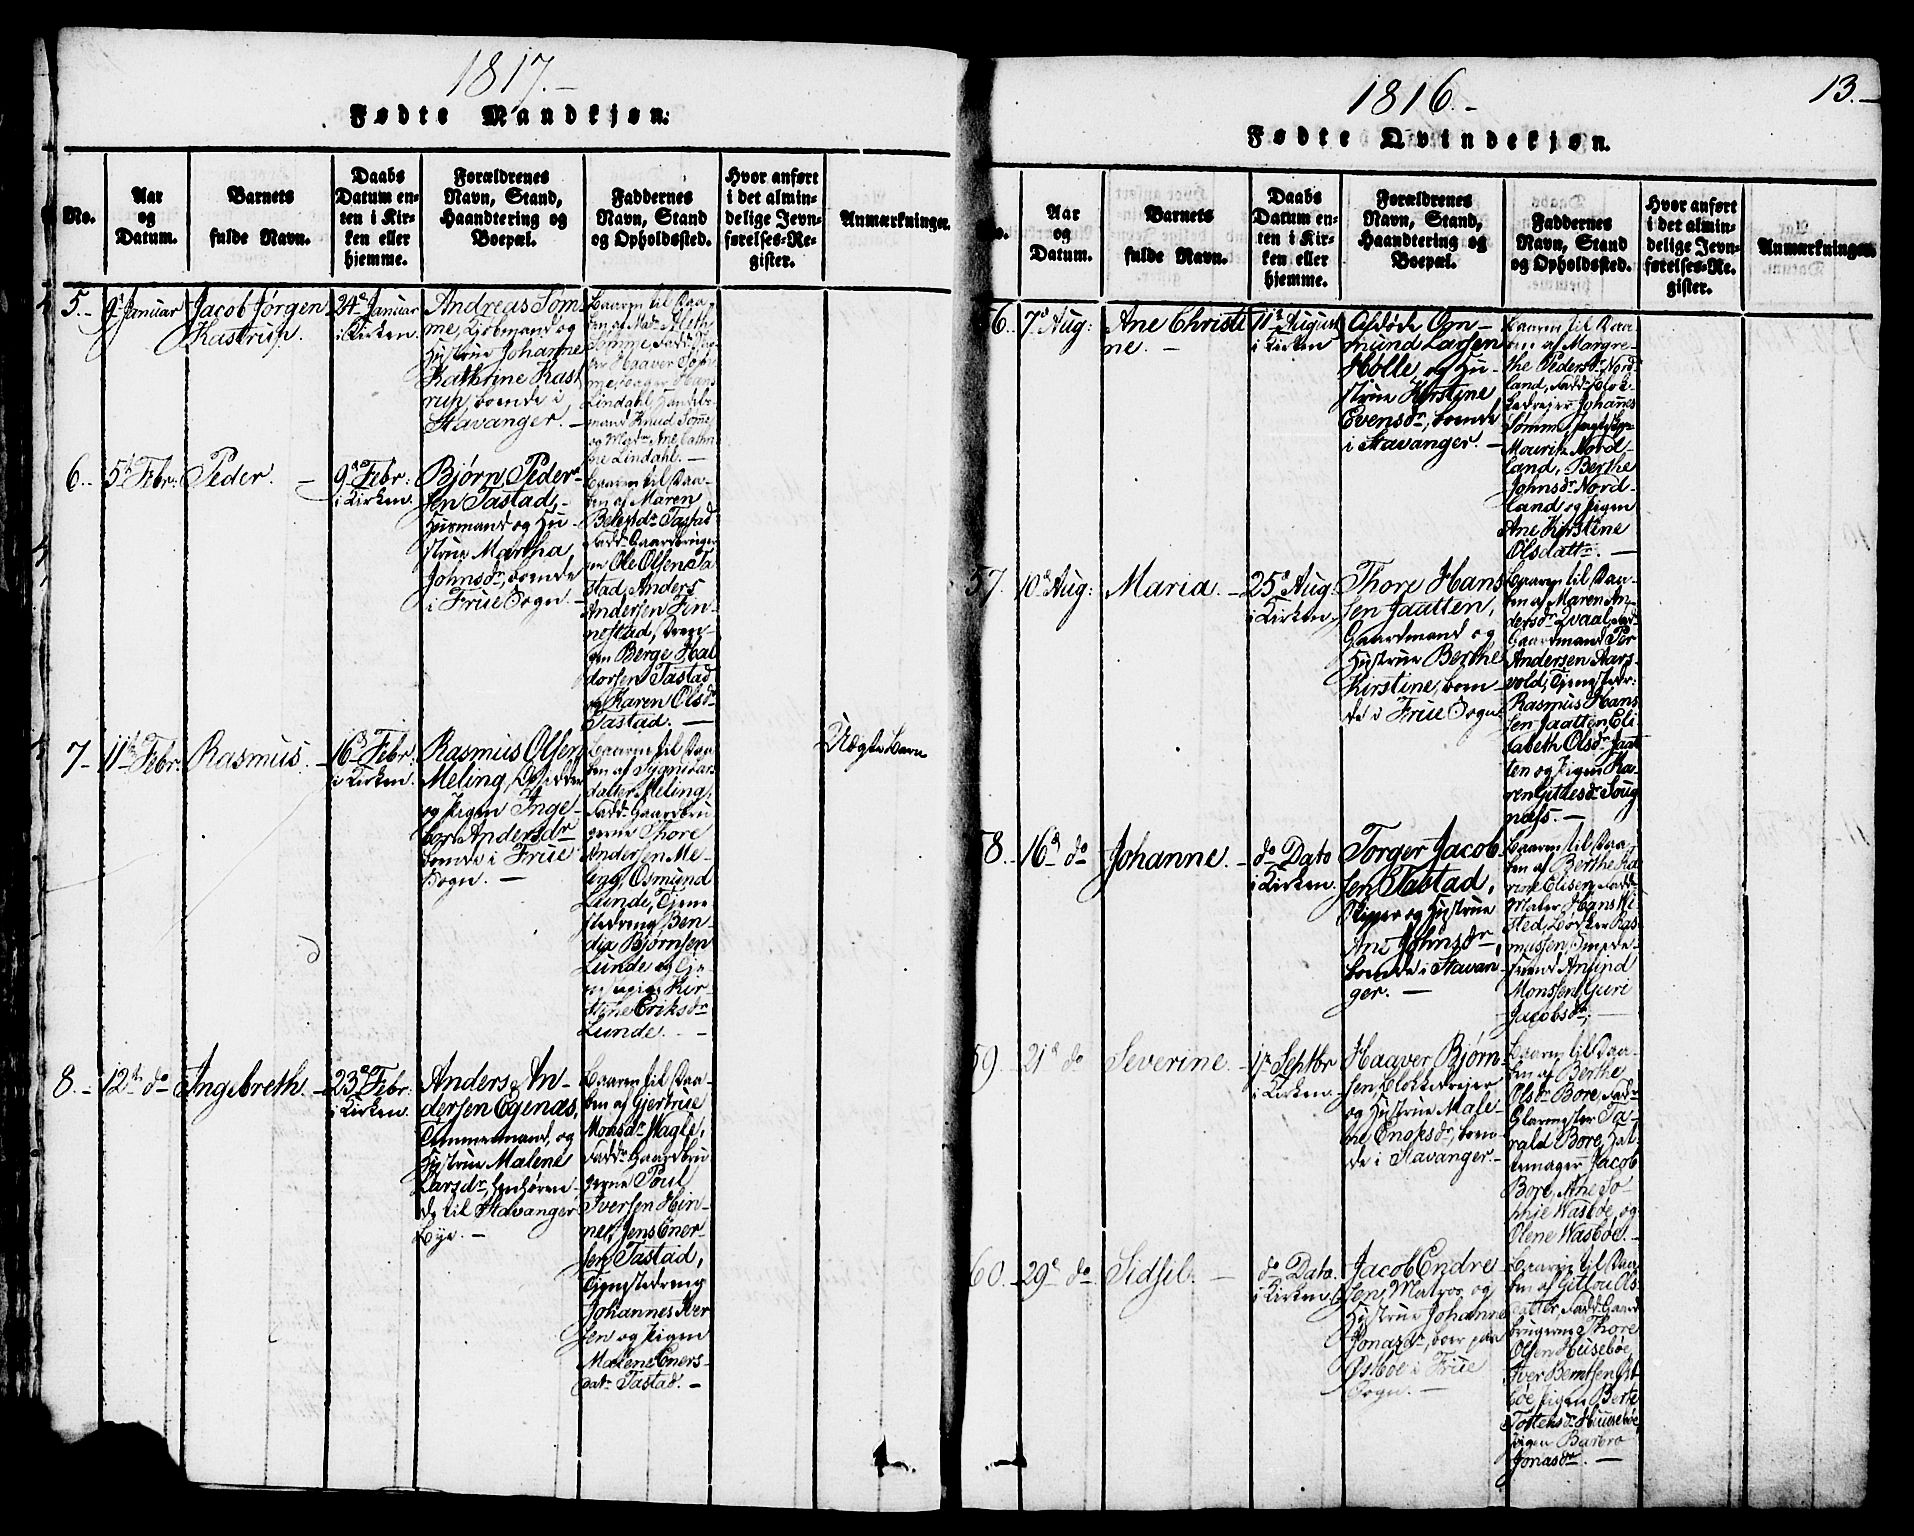 1817.-
Fødte Mandkjøn.
No.
Aar
og
Datum.
Barnets
fulde Navn.
Daabs
Datum en-
ten i Kir-
ken eller
hjemme.
Forældrenes
Navn, Stand,
Haandtering og
Boepæl.
Faddernes
Navn, Stand
og Opholdssted.
Hvor anført
i det almin-
delige Jevn-
førelses-Re-
gister.
Anmærkninger.
5.-
9d Januar
Jacob Jørgen
Kastrup.
24d Januar
i Kirken.
Andreas Søm-
me, Kjøbmand og
Hustrue Johanne
Kathrine Kast
rup, boende i
Stavanger.-
Baaren til Daa-
ben af
Sømme, Fadd.
Haaver
Hans
Lindahl,
mand Knud Sømme
Lindahl.-
6.-
5t Febr:
Peder.-
9d Febr:
i Kirken.
Bjørn Peder-
sen Tastad,
Huusmand og Hu-
strue Martha
Johnsdr, boende
i Frue Sogn.-
Baaren til Daa-
ben af Maren
Tastad
Fadd. Gaardbruger
Ole Olsen Ta-
stad, Anders
Andersen Fin-
nestad, Dren-
gen Berge Hal
dorsen Tastad
og Karen Olsdr
Tastad.-
7.-
11te Febr.
Rasmus.-
16d Febr:
i Kirken.
Rasmus Olsen
Meling,
og Pigen Inge-
bor Andersdr
boende i Frue
Sogn.-
Baaren til Daa-
ben af
datter Meling,
Fadd. Gaardbru
gerne Thore
Andersen Me-
ling, Osmund
Lunde, Tjene-
stedreng Ben-
dix Bjørnsen
Lunde og Tje-
Kir-
stine Eriksdr
Lunde.-
Uægte Barn
8.-
12te do
Ingebreth.-
23d Febr:
i Kirken.
Anders An-
dersen Egenæs,
Tømmermand, og
Hustrue Malene
Larsdr, henhøren-
de til Stavanger
Bye.-
Baaren til Daa-
ben af Gjertrue
Monsdr Nagle,
Fadd. Gaardbru
gerne Poul
Iversen Hin-
ne, Jens Ener-
sen Tastad,
Tjenestedreng
Johannes Iver
sen og Pigen
Malene Eners-
datr Tastad.-
1816.-
13.-
Fødte Qvindekjøn.
No.
Aar
og
Datum.
Barnets
fulde Navn.
Daabs
Datum en-
ten i Kir-
ken eller
hjemme.
Forældrenes
Navn, Stand,
Haandtering og
Boepæl.
Faddernes
Navn, Stand
og Opholdssted.
Hvor anført
i det almin-
delige Jevn-
førelses-Re-
gister.
Anmærkninger.
56.
7d Aug:
Ane Christi
ne.-
11te August
i Kirken
Afdøde Om-
mund Larsen
Holle, og Hu-
strue Kirstine
Evensdr, boende
i Stavanger.-
Baaren til Daa-
ben af Margre-
the Pedersdr Nord
land, Fadd. Klok-
kedreier Johanes
Sømme,
Mourits Nord-
land, Berthe
Johnsdr Nord-
land og Pigen
Ane Kirstine
Olsdattr.-
57.
10d Aug:
Maria.-
25d Aug:
i Kirken.
Thore Hans
sen Jaatten,
Gaardmand og
Hustrue Berthe
Kirstine, boen-
de i Frue Sogn.
Baaren til Daa-
ben af Maren An-
dersdr Qvaal, Fad.
Gaardmand Per
Andersen Aars-
vold, Tjenestedr:
Rasmus Hans
sen Jaatten Eli-
sabeth Olsdr Jaat
ten og Pigen Ka-
ren Gittlesdr Soug
næss.-
58.
16d do
Johanne.-
do Dato
i Kirken.
Torger Jacob-
sen Tastad,
Skipper og Hustrue
Ane Johnsdr,
boende i Stavan-
ger.-
Baaren til Daa-
ben af Berthe Ka
rine Elisen, Fadd.
Maler Hans Wi-
sted, Bødker Ras-
mussen, Smede-
svend Amund
Monsen, Guri
Jacobsdr.-
59.
21d do
Severine.-
1te Septbr
i Kirken.-
Haaver Bjørn-
sen, Blokkedreier
og Hustrue Male-
ne Enoksdr, boen-
de i Stavanger.-
Baaren til Daa-
ben af Berthe
Olsdr Bore, Fadd.
Glarmester Ta-
rald Bore, Hat-
temager Jacob
Bore, Ane So-
phie Wasbøe, og
Olene Wasbøe.-
60.
29d do
Sidsel.-
do Dato.
i Kirken.
Jacob Endre-
sen, Matros, og
Hustrue Johanne
Jonasdr, boer paa
Østbøe i Frue
Sogn.-
Baaren til Daa-
ben af Gitlou Ols
datter, Fadd. Gaard
brugerne Thore
Olsen Husebøe,
Iver Berntsen Øst
bøe, Pigen Berte
Tostensdr Huusebøe,
Pigen Barbro
Jonasdr.-